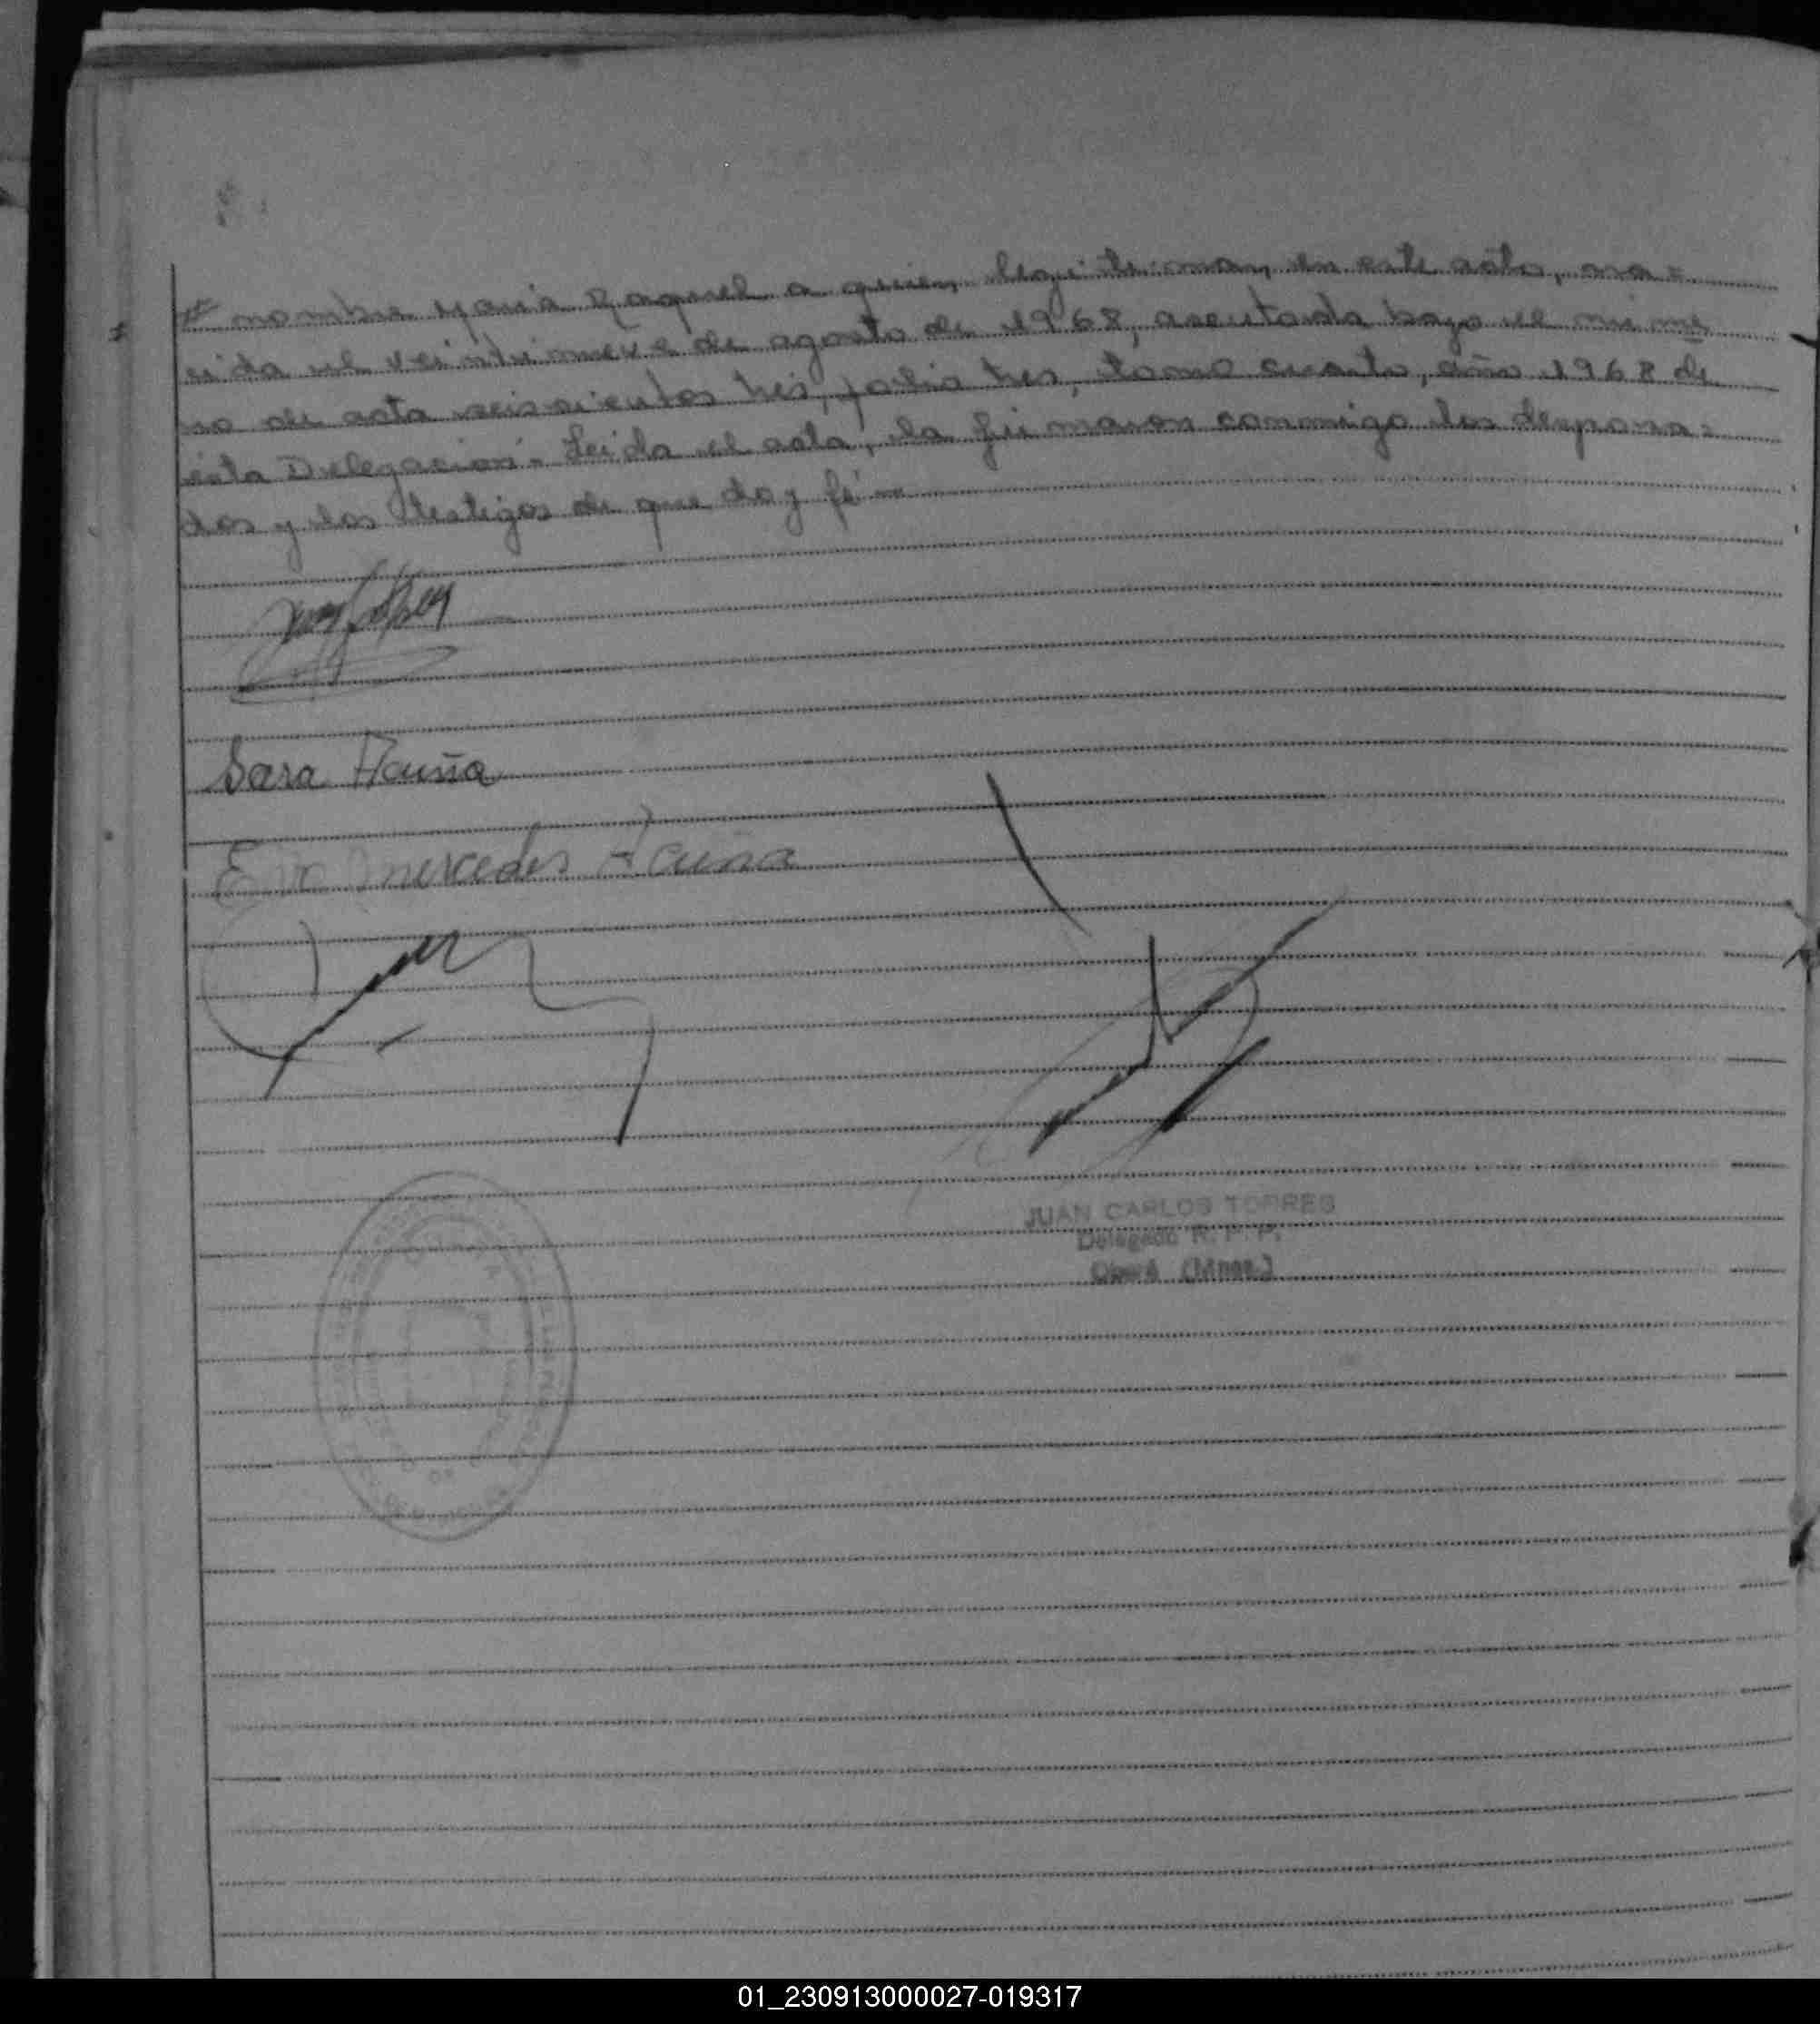 nombre Maria Raquel a quien legitiman en este acto, na=
cida el veintinueve de agosto de 1968, asentada bajo el núme
ro de acta seiscientos tres, folio tres, tomo cuarto, año 1968 de
esta Delegación.- Leída el acta, la firmaron conmigo los desposa=
dos y los testigos de que doy fé
Sara Acuña
Eva Mercedes Acuña
JUAN CARLOS TORRES
Delegado R. P. P.
Oberá (Mnes.)
01_230913000027-019317